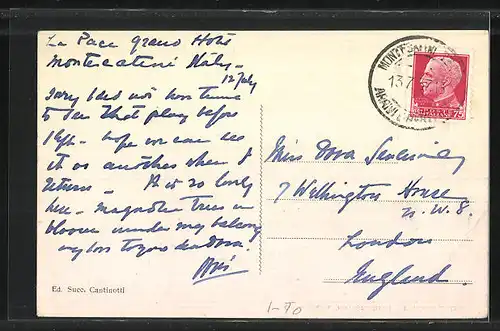 La Pace Grand Hotel
Montecatini Italy
12 July
Sorry I did not have time
to see that play before
I left - hope we can see
it or another when I
return - It is so lovely
here - magnolia trees in
bloom under my balcony
my love to you dear Dora.
Ed. Succ. Cantinotti
Miss Dora
7 Wellington House
N. W. 8.
London
England
13.7
1-70